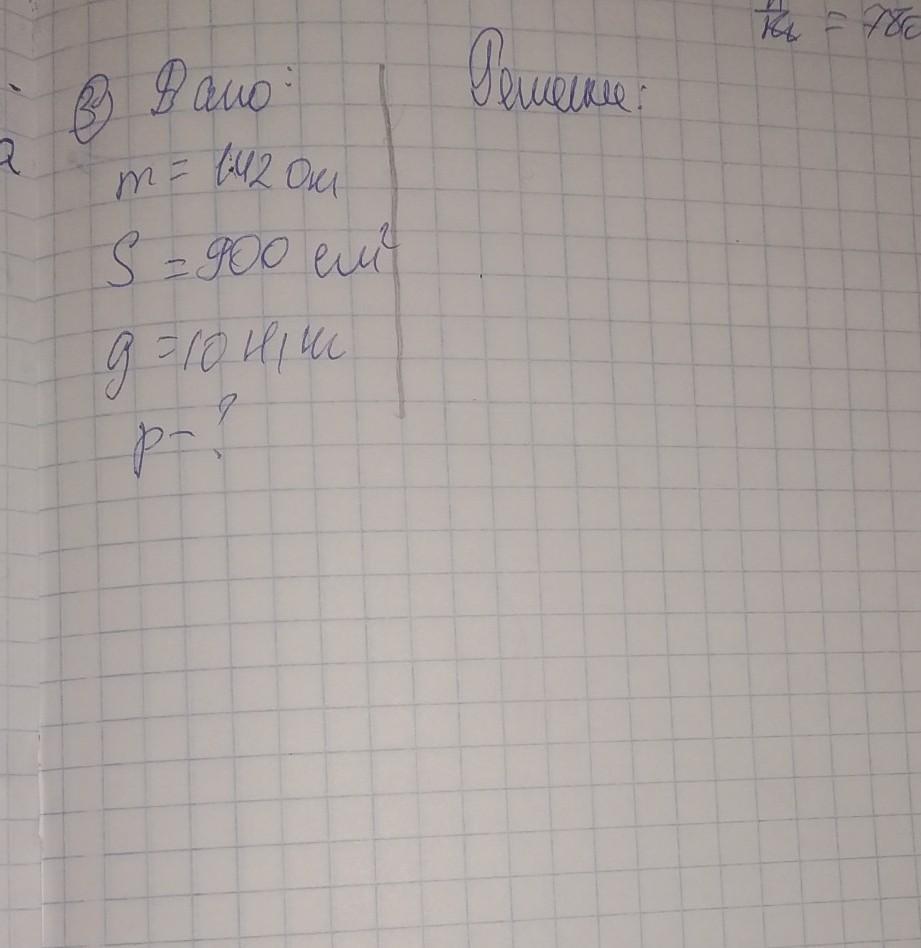 = 780
③ Дано: Решение:
m = 1420 кг
S = 900 см²
g = 10 Н/кг
p - ?